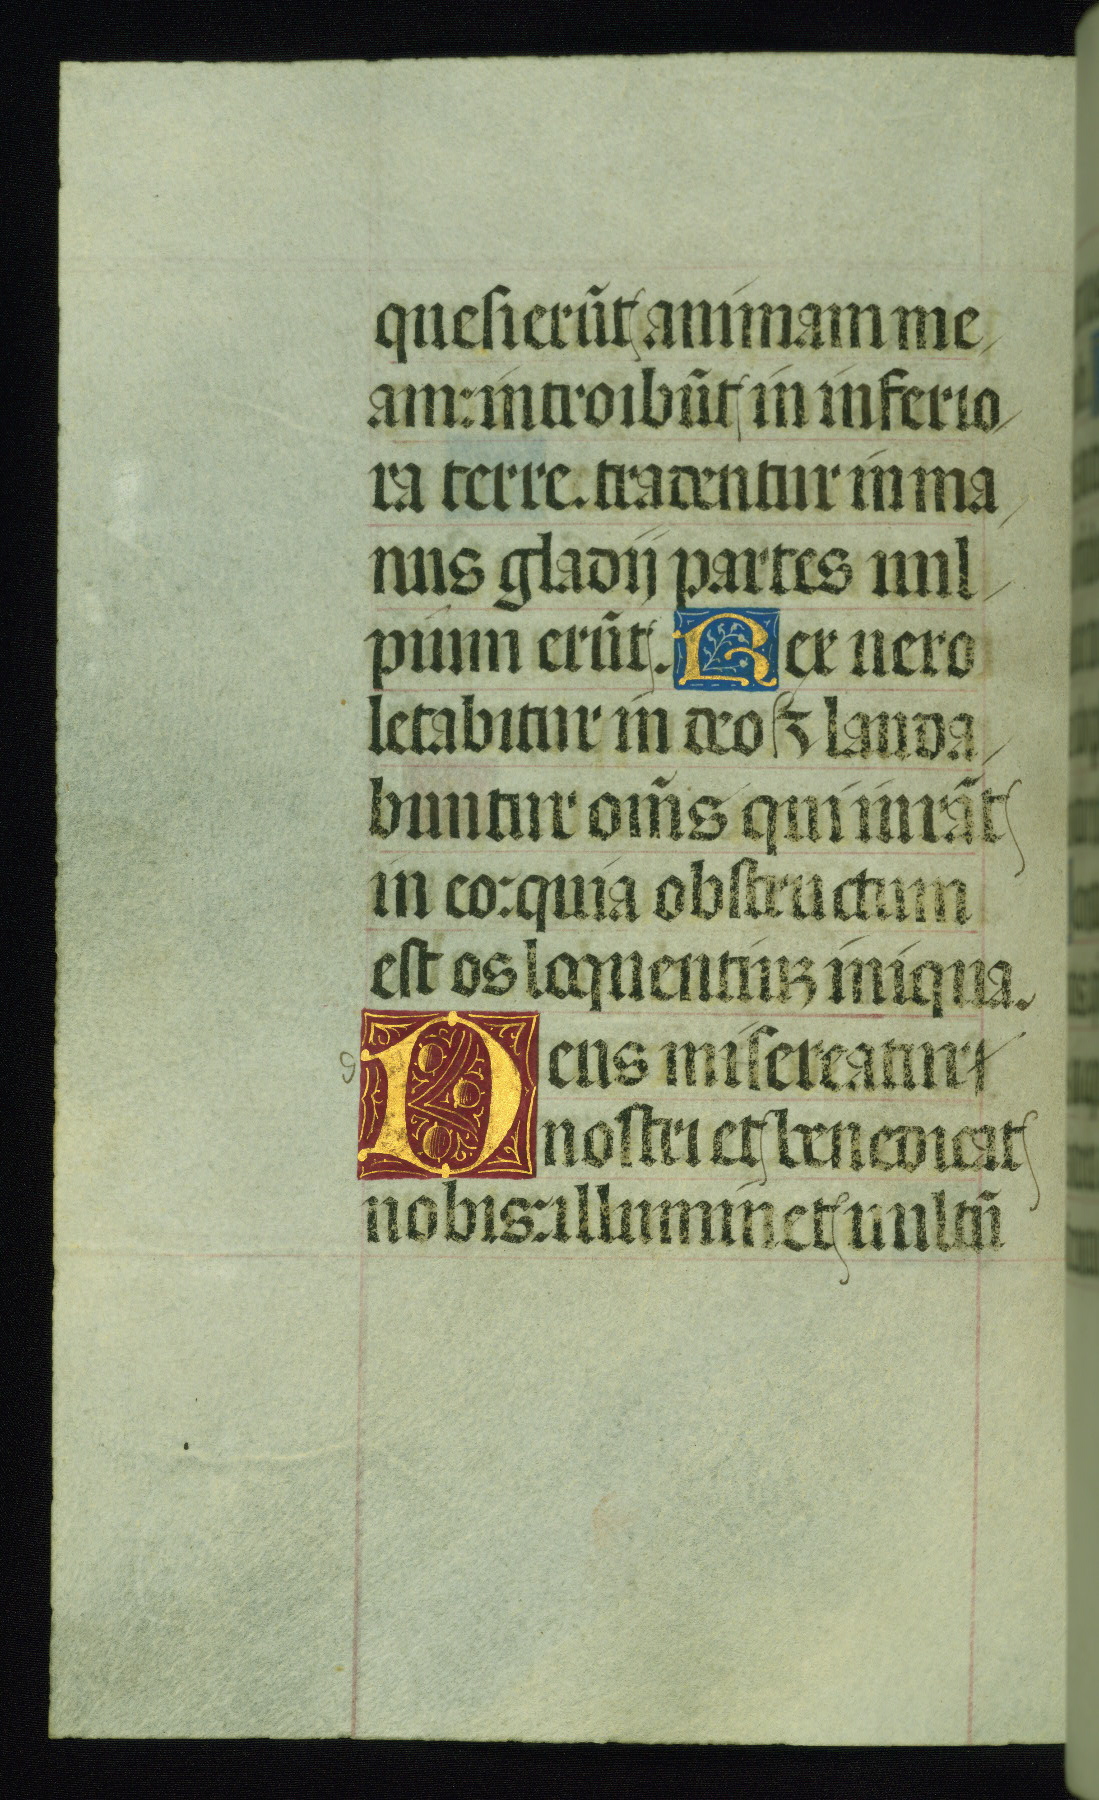 quesierūt animam me
am: introibūt in inferio
ra terre. tradentur in ma
nus gladij partes uul
pium erūt. Rex uero
letabitur in deo ⁊ lauda
buntur om̄s qui iurāt
in eo: quia obstructum
est os loquentiuꝫ iniqua.
Deus misereatur
nostri et benedicat
nobis: illuminet uultū